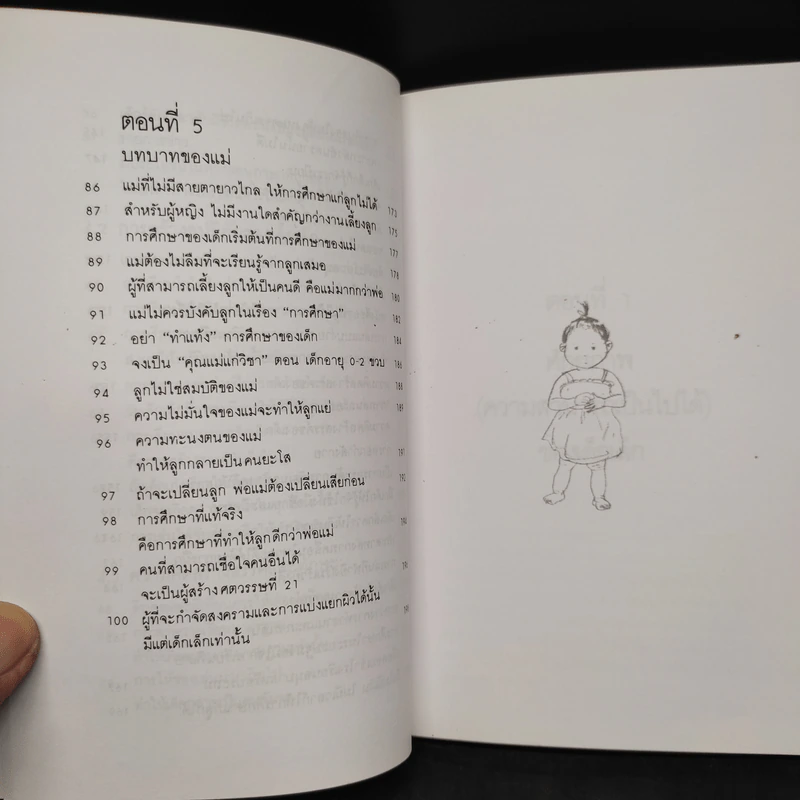 ตอนที่ 5
บทบาทของแม่
86 แม่ที่ไม่มีสายตายาวไกล ให้การศึกษาแก่ลูกไม่ได้ 173
87 สำหรับผู้หญิง ไม่มีงานใดสำคัญกว่างานเลี้ยงลูก 175
88 การศึกษาของเด็กเริ่มต้นที่การศึกษาของแม่ 177
89 แม่ต้องไม่ลืมที่จะเรียนรู้จากลูกเสมอ 178
90 ผู้ที่สามารถเลี้ยงลูกให้เป็นคนดี คือแม่มากกว่าพ่อ 180
91 แม่ไม่ควรบังคับลูกในเรื่อง “การศึกษา” 182
92 อย่า “ทำแท้ง” การศึกษาของเด็ก 184
93 จงเป็น “คุณแม่แก่วิชา” ตอน เด็กอายุ 0-2 ขวบ 186
94 ลูกไม่ใช่สมบัติของแม่ 188
95 ความไม่มั่นใจของแม่จะทำให้ลูกแย่ 189
96 ความทะนงตนของแม่
ทำให้ลูกกลายเป็นคนยะโส 191
97 ถ้าจะเปลี่ยนลูก พ่อแม่ต้องเปลี่ยนเสียก่อน
98 การศึกษาที่แท้จริง
คือการศึกษาที่ทำให้ลูกดีกว่าพ่อแม่
99 คนที่สามารถเชื่อใจคนอื่นได้
จะเป็นผู้สร้างศตวรรษที่ 21
100 ผู้ที่จะกำจัดสงครามและการแบ่งแยกผิวได้นั้น
มีแต่เด็กเล็กเท่านั้น